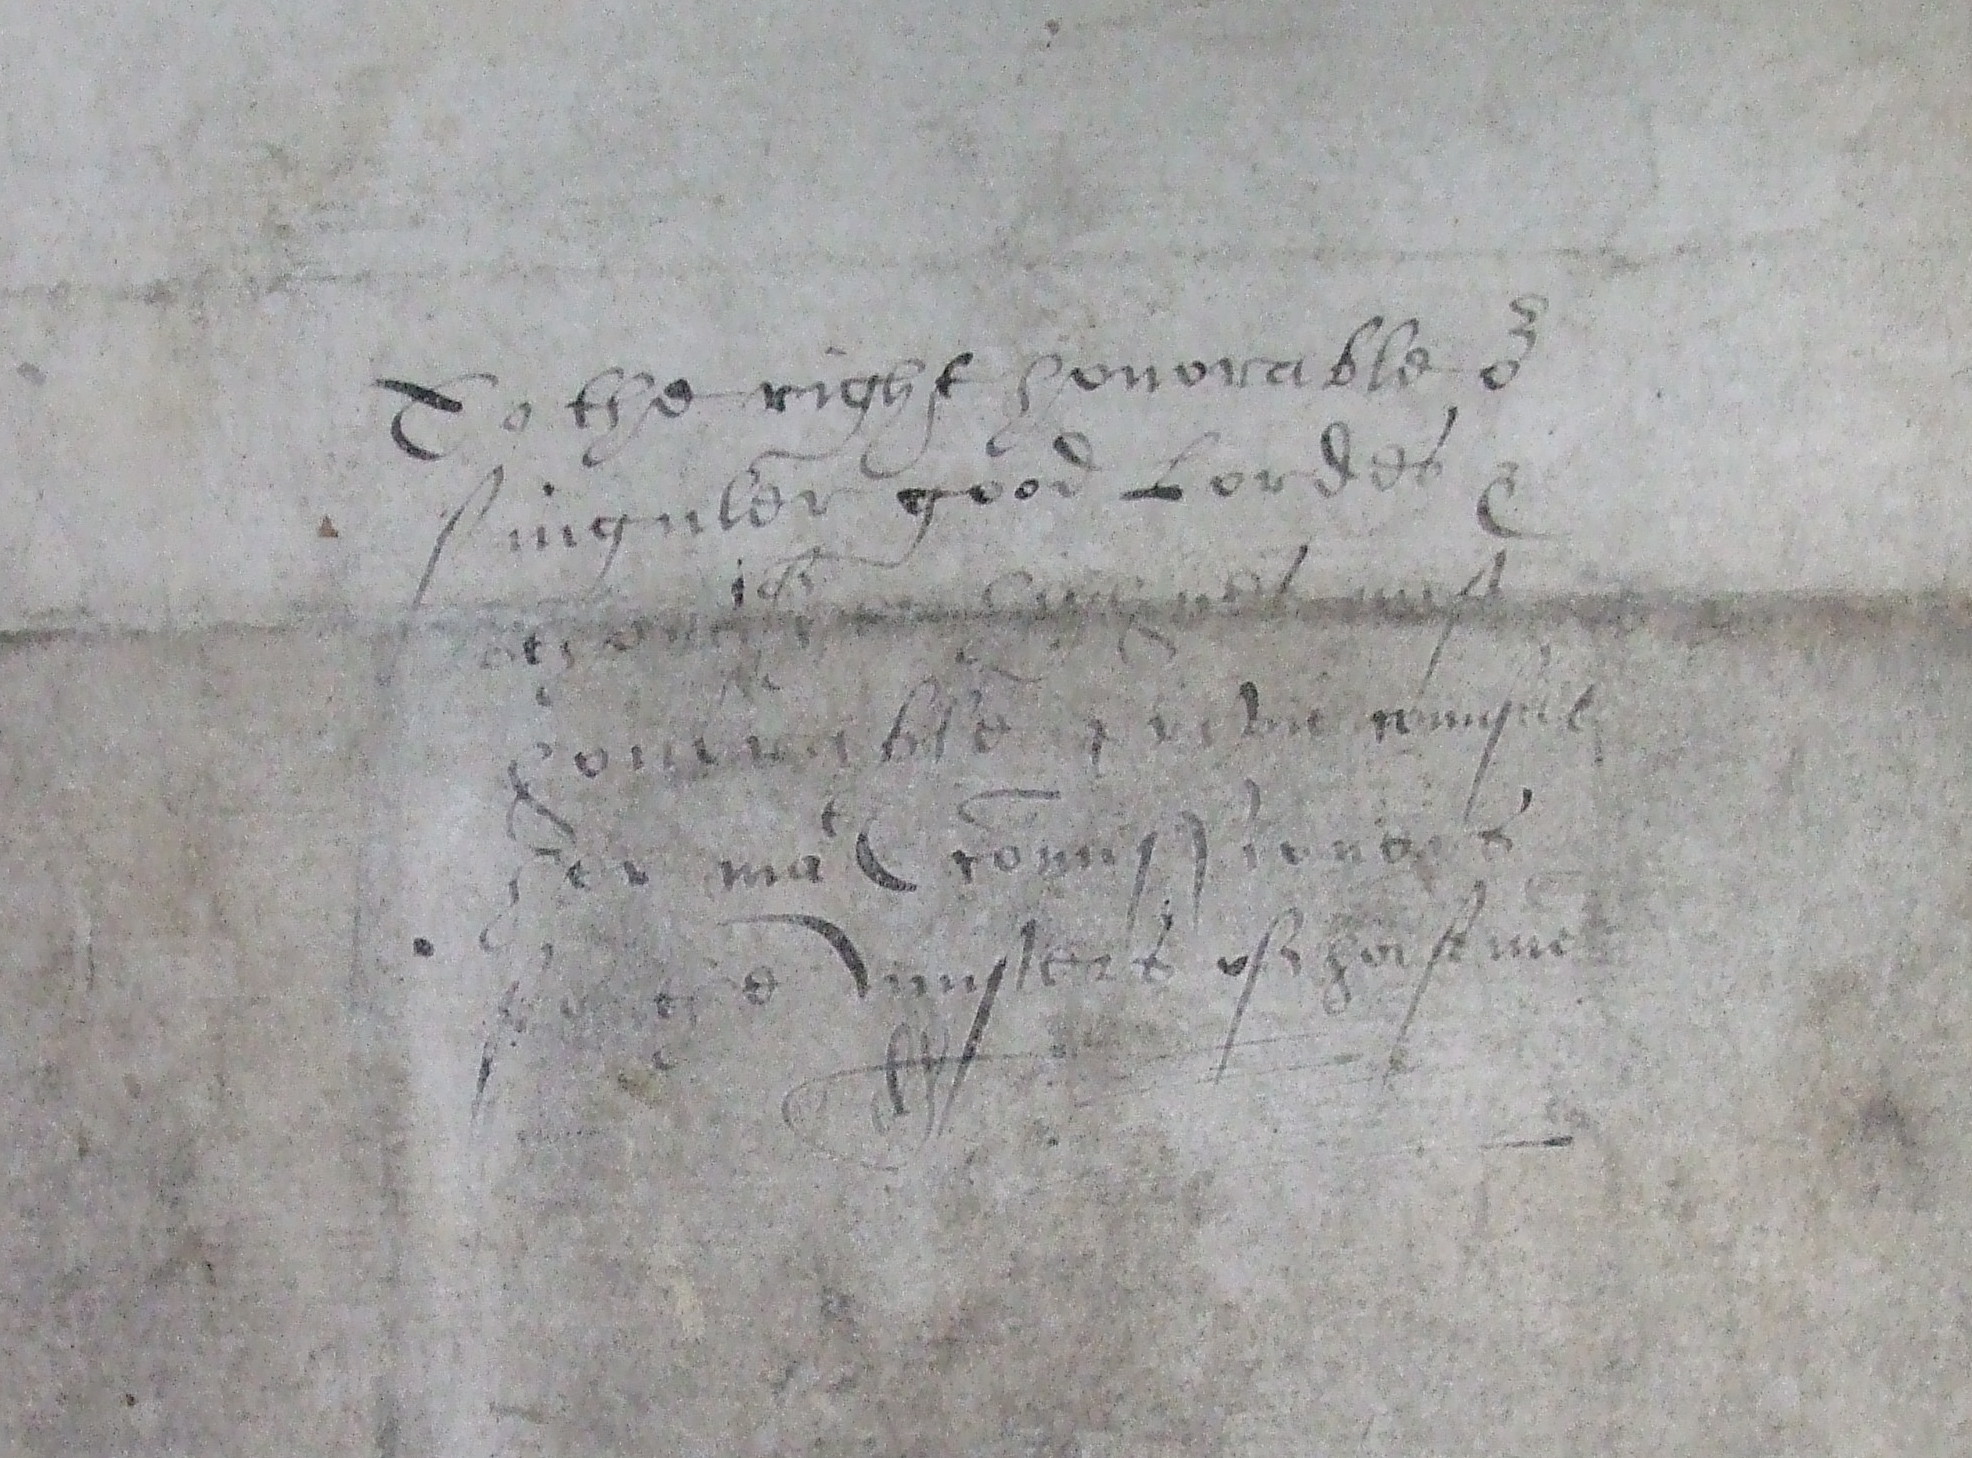 To the right honorable or
singuler good Lordes &
others highnes most
honorable privie counsell
her mats comissioners
for the musters of horsemē